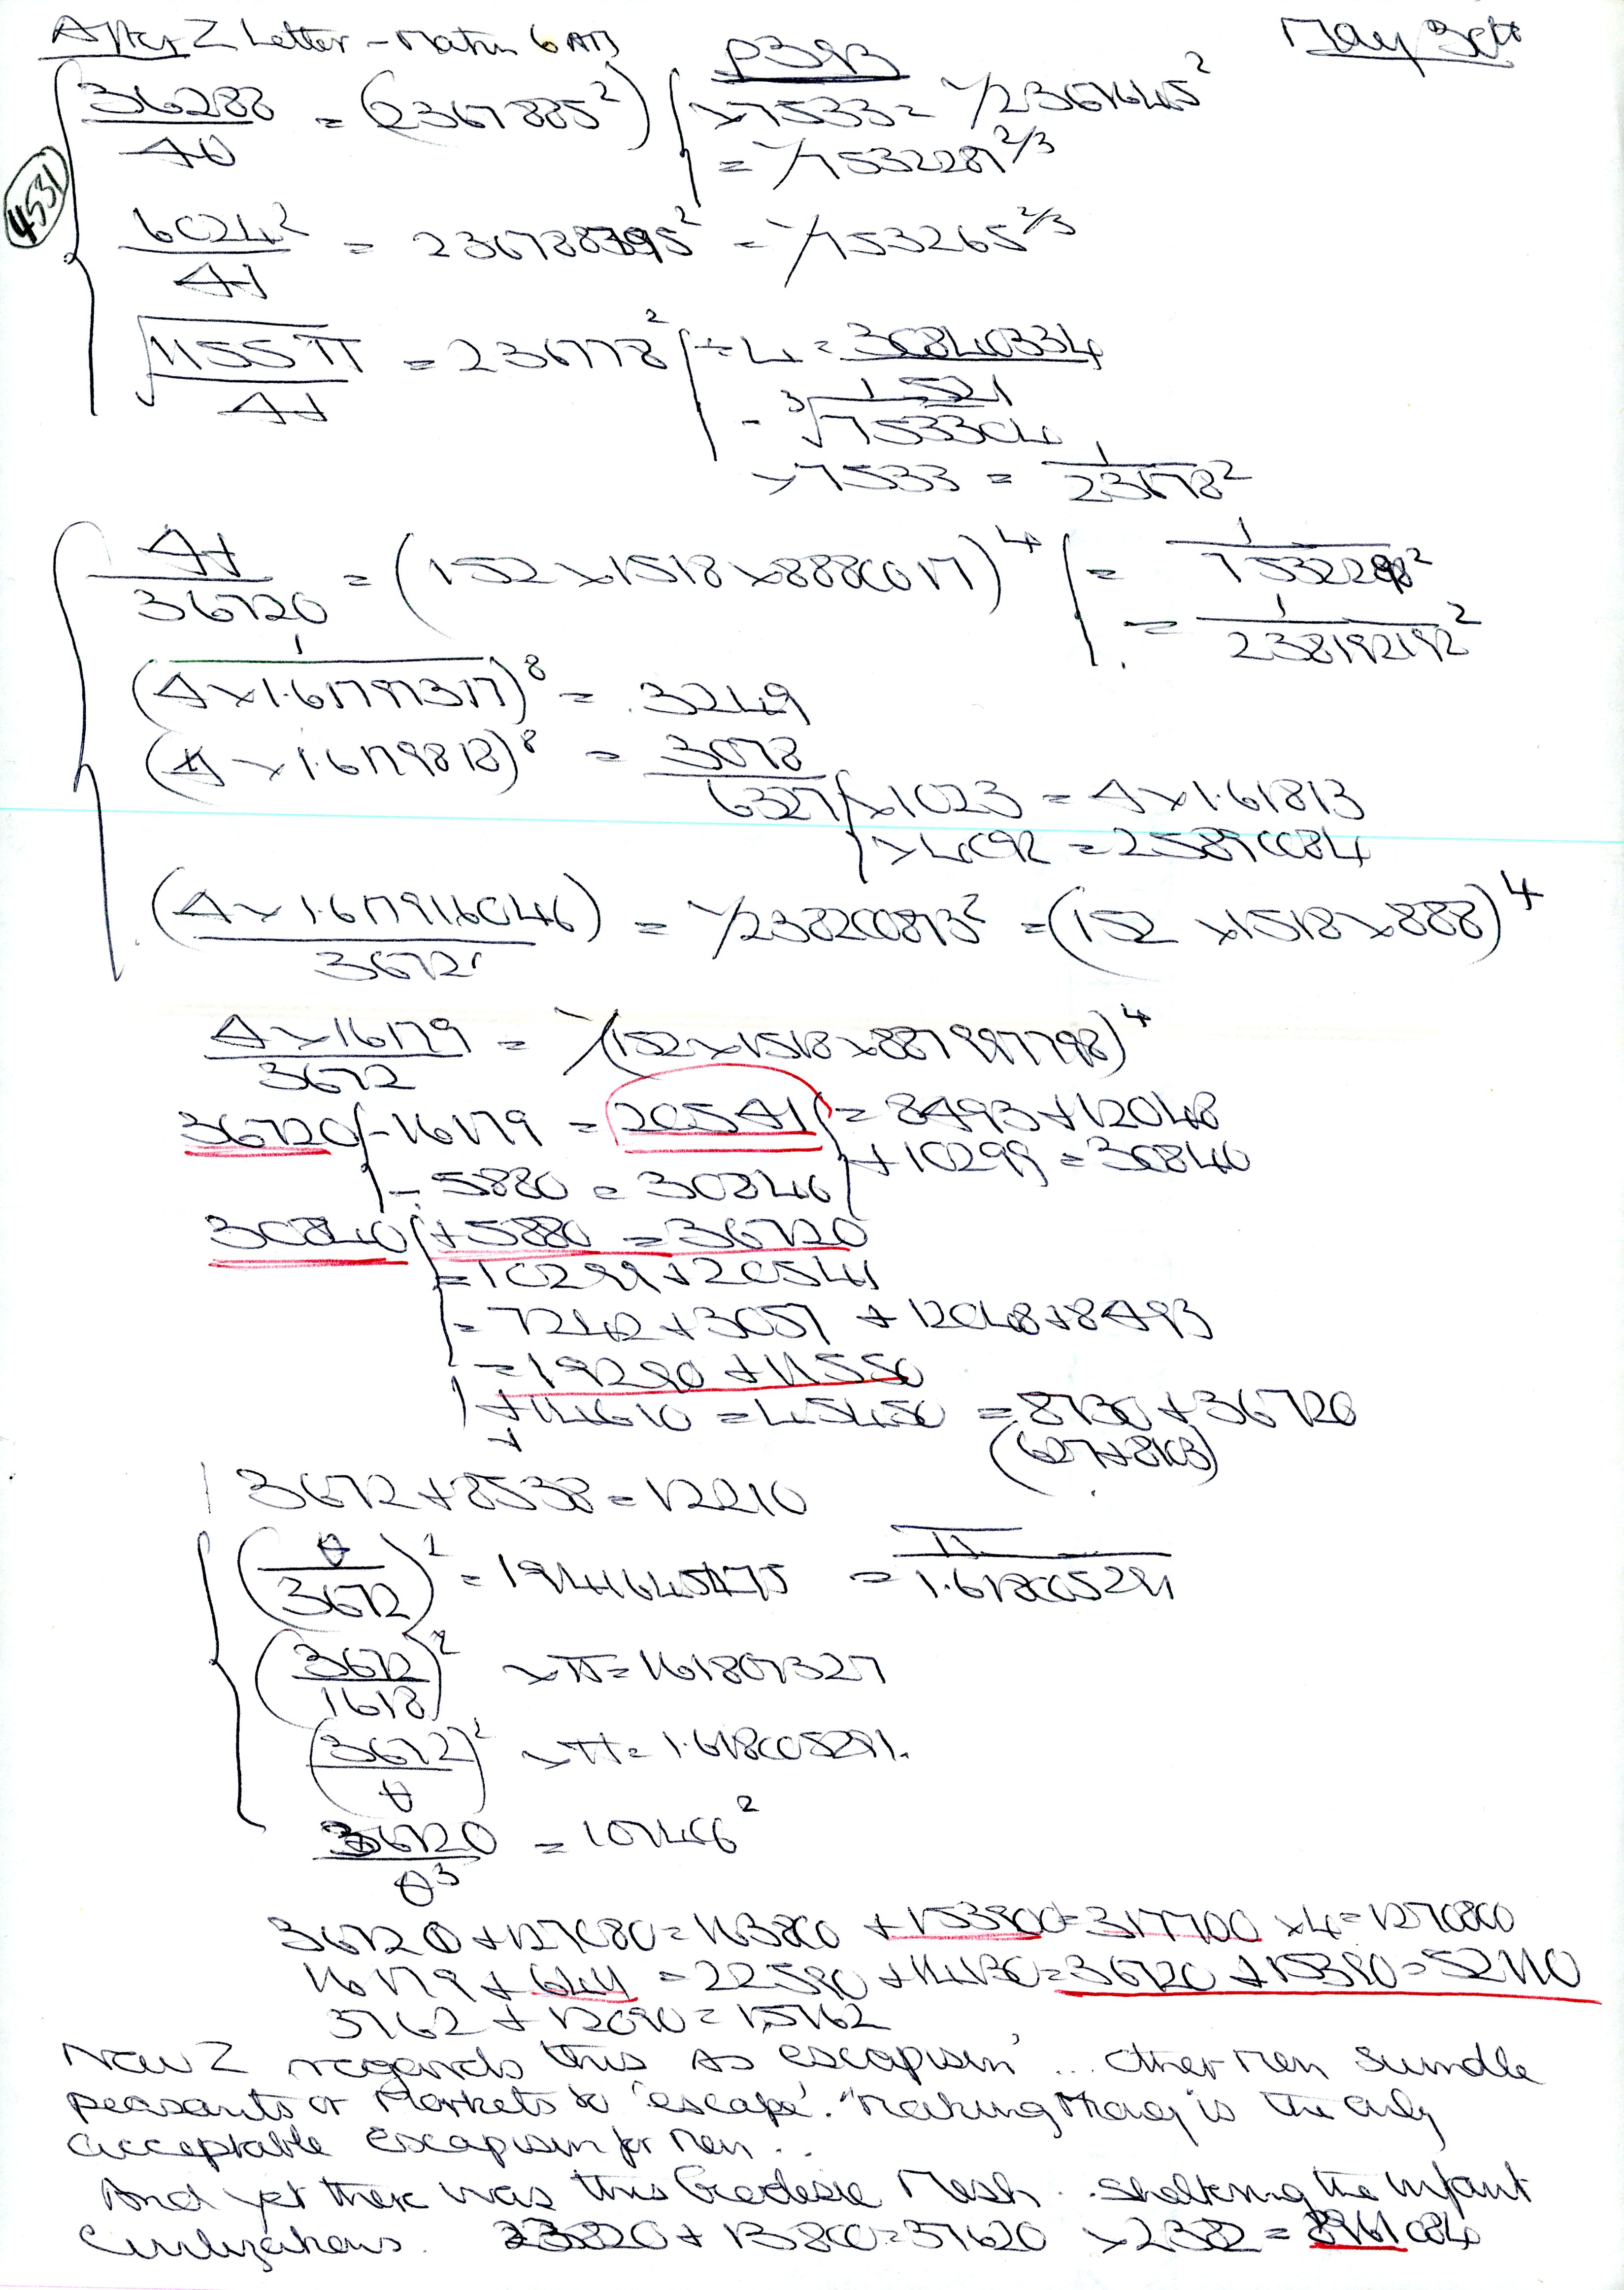 After Z Letter - Maths 6 AM
May 30th
p393
4531
36288 / A0 = (2367885²)
×7533 = 1/23676445²
= 1/7532287^2/3
6024² / A1 = 236788395² = 1/753265^2/3
√1155π / A1 = 236778²
÷ 4 = 30840334 / 1.521
= ³√753304
×7533 = 1 / 23678²
A1 / 36720 = (152 × 1518 × 8880017)⁴
= 1 / 7532298²
= 1 / 238192192²
1 / (A × 1.61797317)⁸ = .3249
(A × 1.6179818)⁸ = 3078 / 6327
×1023 = A × 1.61813
×4092 = 25890084
(A × 1.617916046) / 3672 = 1/23820893² = (152 × 1518 × 888)⁴
A × 16179 / 3672 = 1/(152 × 1518 × 887997798)⁴
36720 - 16179 = 20541 = 8493 + 12048
+ 10299 = 30840
- 5880 = 30840
30840 + 5880 = 36720
= 10299 + 20541
= 7242 + 3057 + 12048 + 8493
= 19290 + 11550
+ 14610 = 45450 = 8730 + 36720
(627 + 8103)
3672 + 8538 = 12210
(θ / 3672)² = 1941645475 = π / 1.618005291
(3672 / 1618)² × π = 161807327
(3672 / θ)² × π = 1.618005291.
36720 / θ³ = 107466²
36720 + 127080 = 163800 + 153900 = 317700 × 4 = 1270800
16179 + 6411 = 22590 + 14130 = 36720 + 15390 = 52110
3762 + 12090 = 15762
Now Z regards this as 'escapism' .. other men swindle
peasants or Markets to 'escape'. "Making Money is the only
acceptable escapism for men ..
And yet there was this Geodesic Mesh .. sheltering the infant
Civilizations. 23820 + 13800 = 37620 × 2382 = 8961084